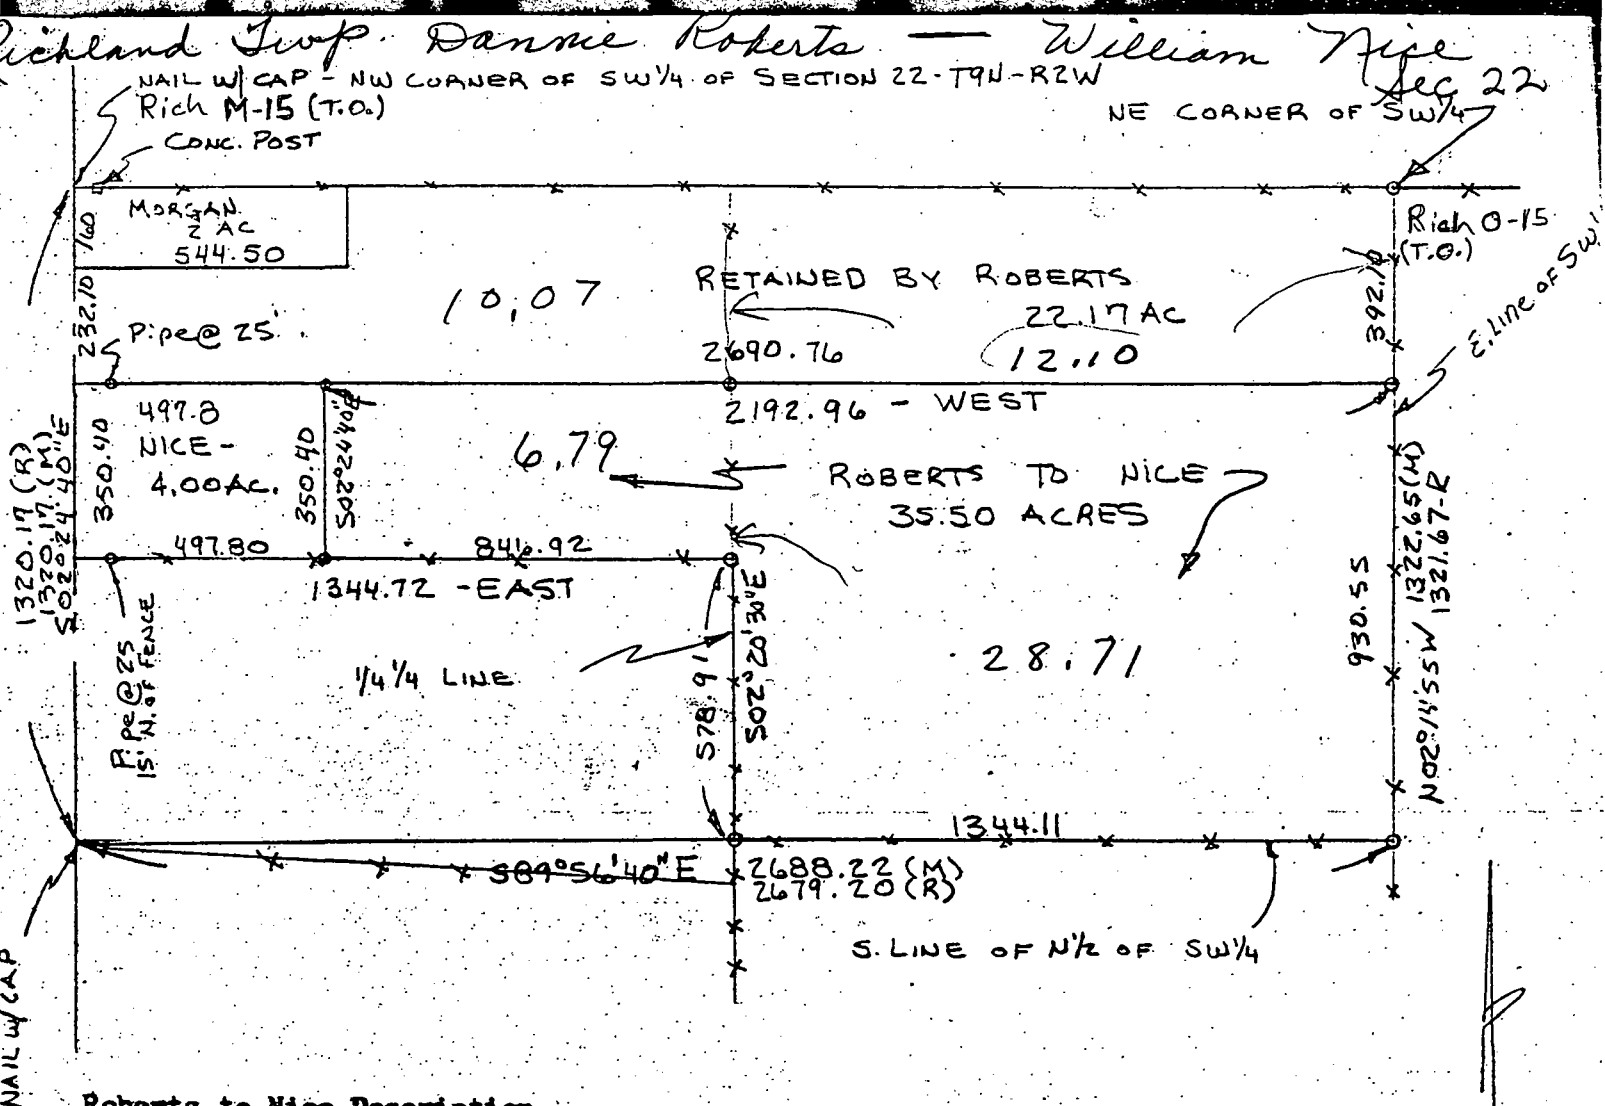 Richland Twp. Dannie Roberts — William Nice
Sec 22
NAIL W/ CAP - NW CORNER OF SW 1/4 OF SECTION 22-T9N-R2W
Rich M-15 (T.O.)
CONC. POST
NE CORNER OF SW 1/4
MORGAN
2 AC
544.50
160
232.10
Pipe @ 25'
10.07
RETAINED BY ROBERTS
22.17 AC
12.10
2690.76
392.10
Rich O-15
(T.O.)
E. LINE OF SW
2192.96 - WEST
497.8
NICE -
4.00 AC.
350.40
350.40
S02°24'40"E
6.79
ROBERTS TO NICE
35.50 ACRES
497.80
846.92
1344.72 - EAST
1320.17 (R)
1320.17 (M)
S02°24'40"E
Pipe @ 25
15' N. OF FENCE
1/4 1/4 LINE
578.91
S02°20'30"E
28.71
930.55
N02°14'55W 1322.65 (M)
1321.67-R
1344.11
S89°56'40"E
2688.22 (M)
2679.20 (R)
S. LINE OF N 1/2 OF SW 1/4
NAIL W/ CAP
Roberts to Nice Description